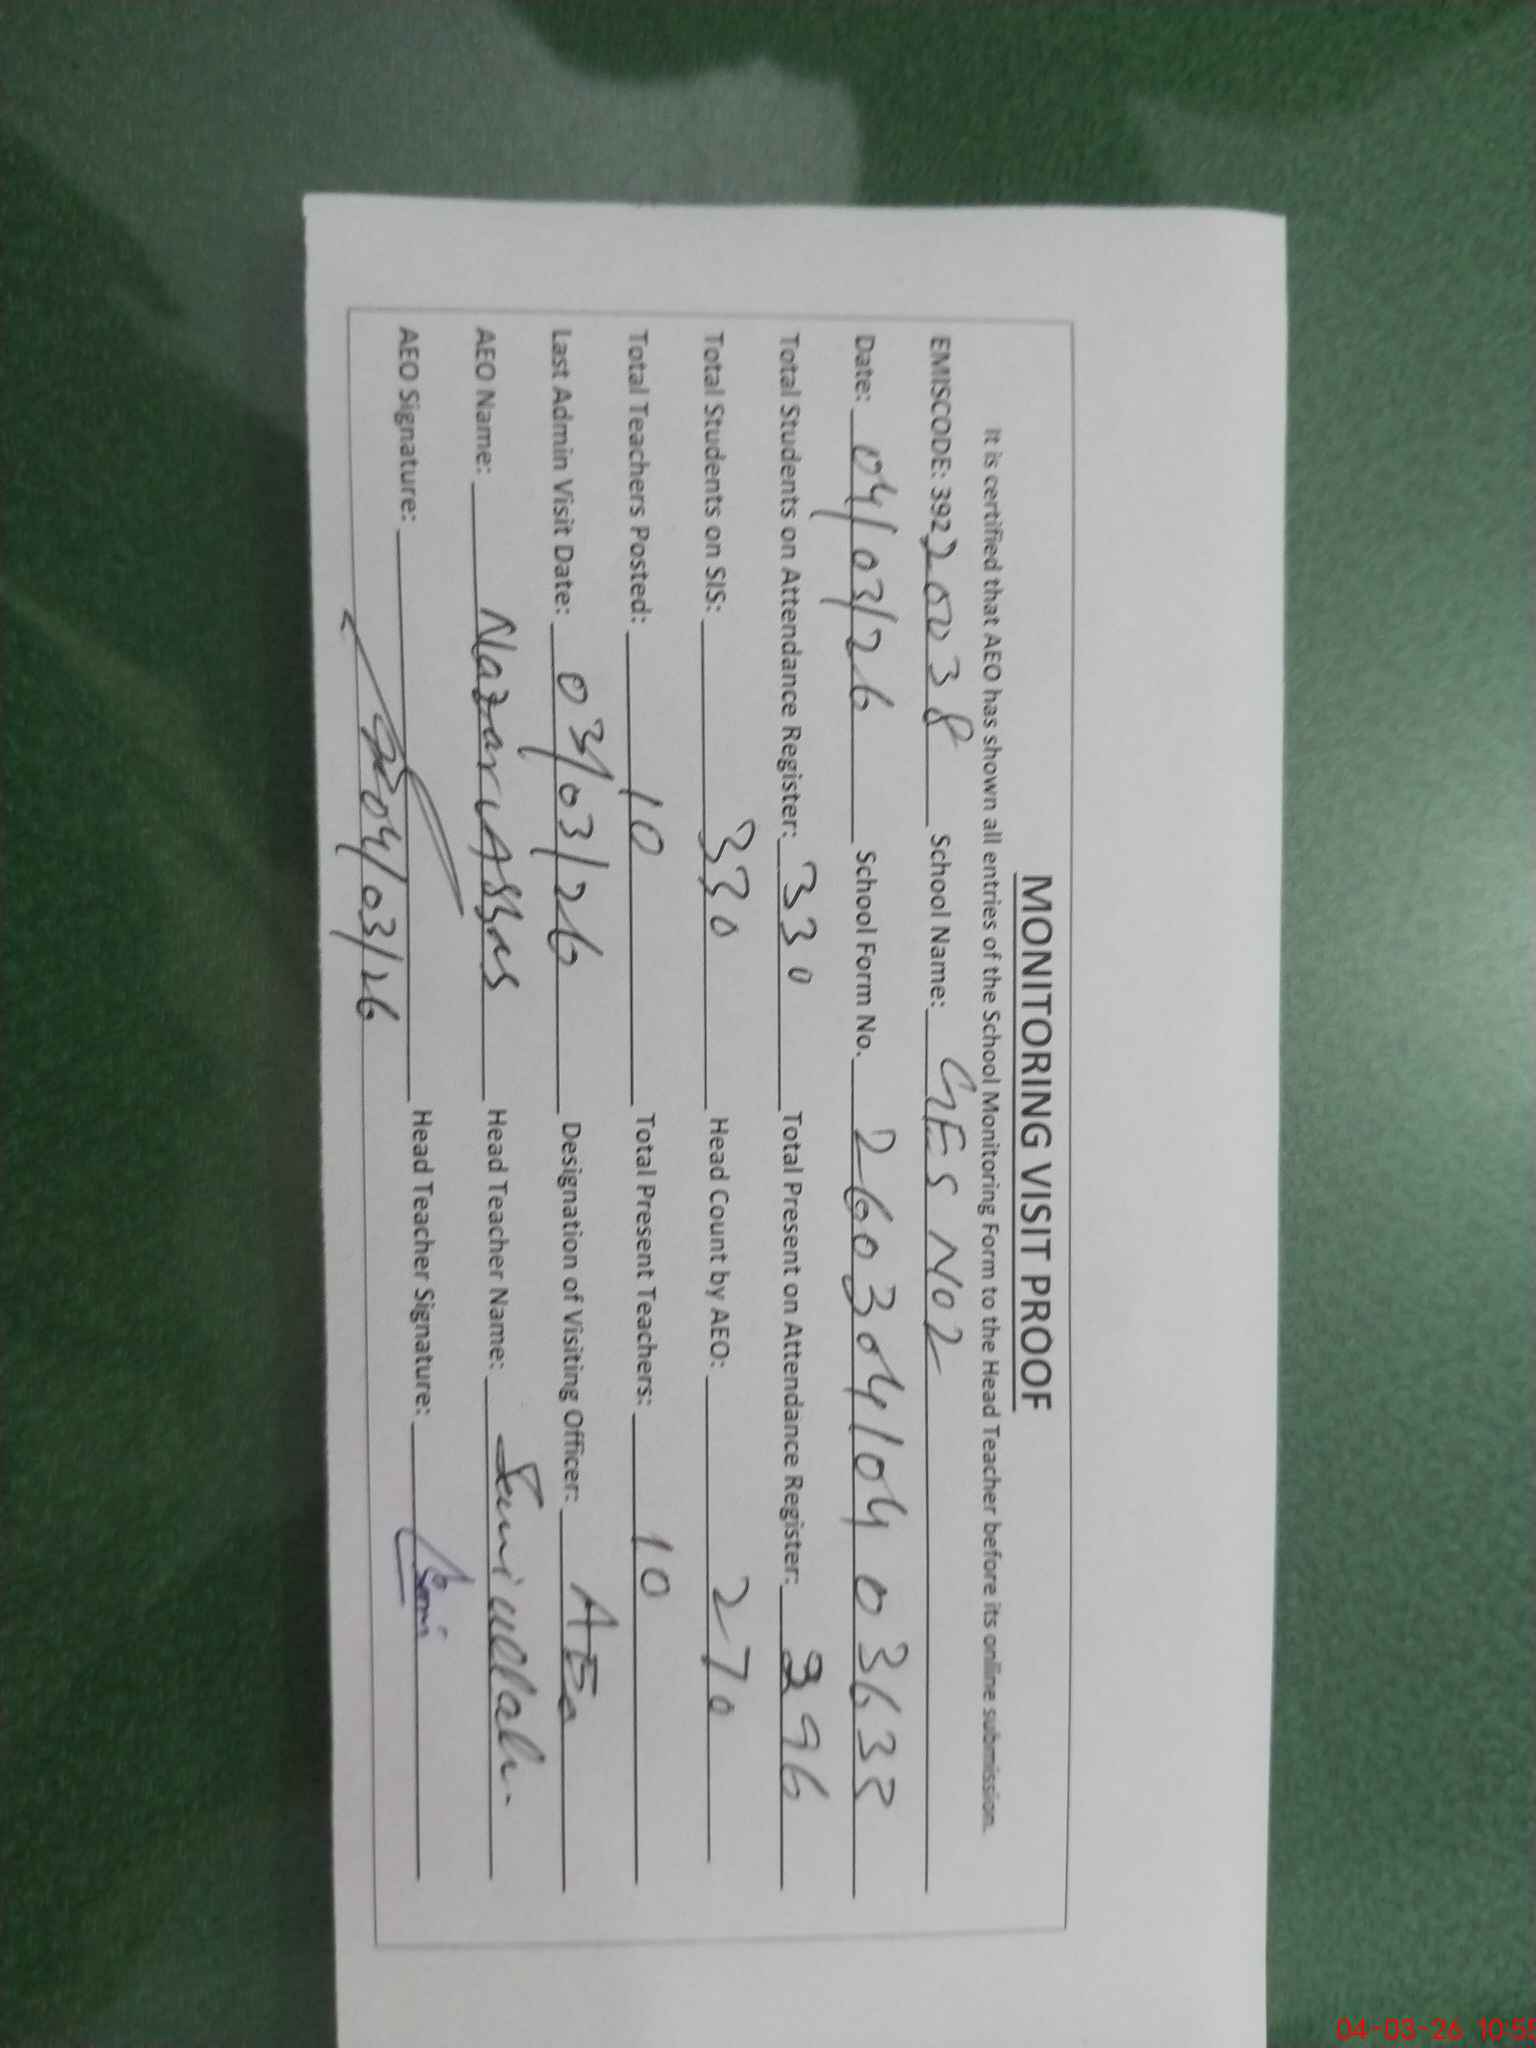 MONITORING VISIT PROOF
It is certified that AEO has shown all entries of the School Monitoring Form to the Head Teacher before its online submission.
EMISCODE: 39220038 School Name: GES NO2
Date: 04/03/26 School Form No. 2603041040363
Total Students on Attendance Register: 330 Total Present on Attendance Register: 296
Total Students on SIS: 330 Head Count by AEO: 270
Total Teachers Posted: 10 Total Present Teachers: 10
Last Admin Visit Date: 03/03/26 Designation of Visiting Officer: AEo
AEO Name: Nazar Abbas Head Teacher Name: Samiullah
AEO Signature: Head Teacher Signature: Sami
04/03/26
04-03-26 10:55